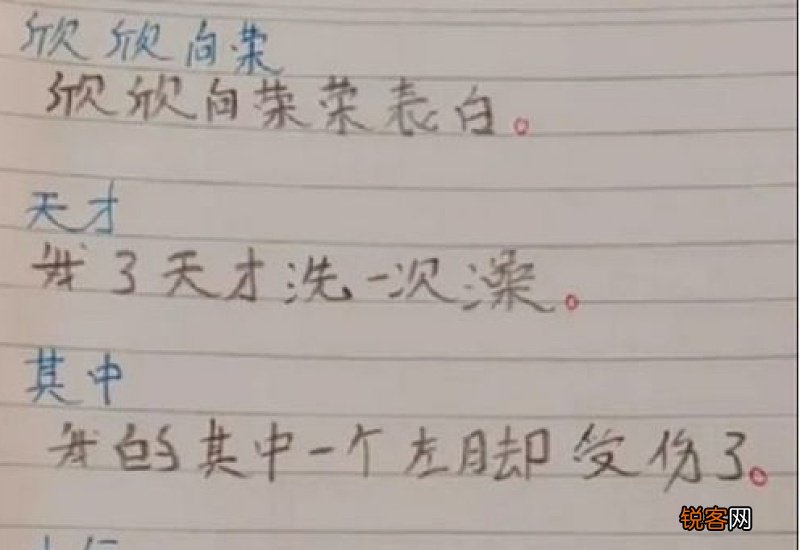 欣欣向荣
欣欣向荣荣表白。
天才
我3天才洗一次澡。
其中
我的其中一个左脚受伤了。
锐客网